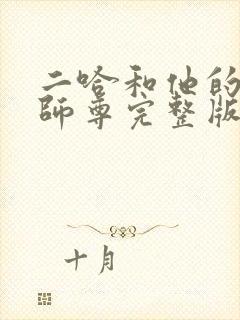 二哈和他的
師尊完整版
十月